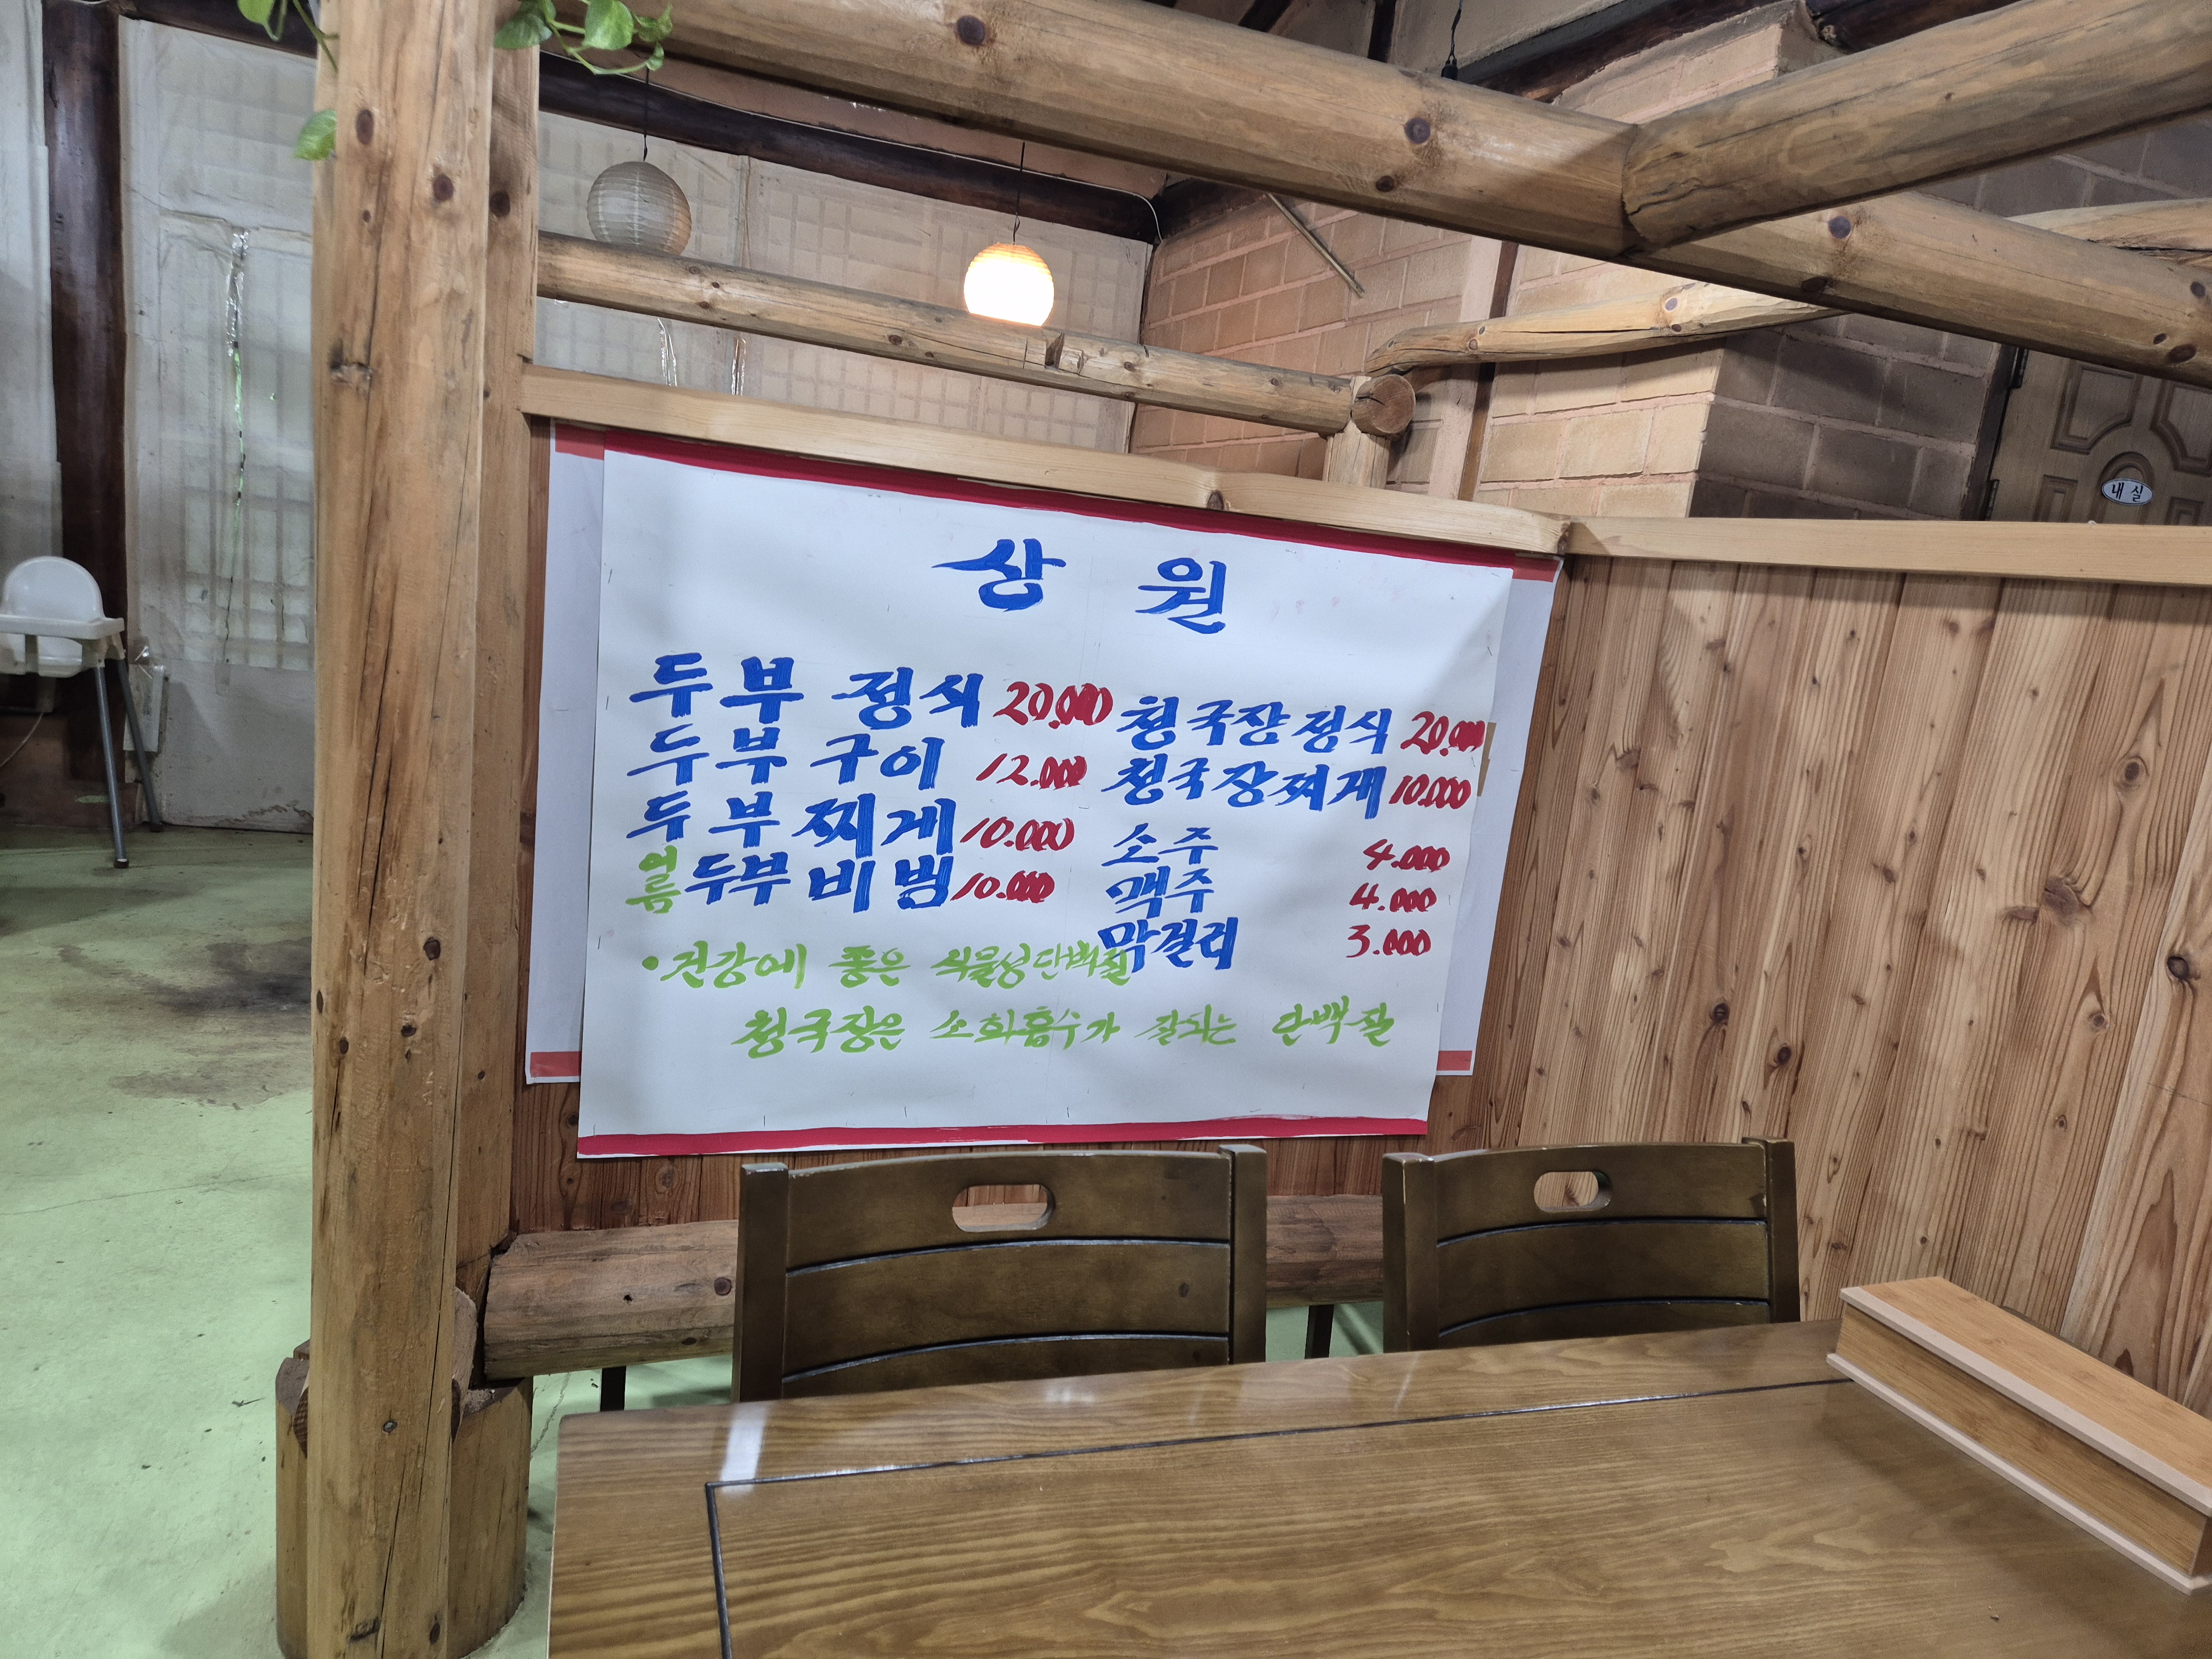 상 원
두부 정식 20.000
두부 구이 12.000
두부 찌게 10.000
여름 두부 비빔 10.000
청국장 정식 20.000
청국장 찌게 10.000
소주 4.000
맥주 4.000
막걸리 3.000
• 건강에 좋은 식물성단백질
청국장은 소화흡수가 잘되는 단백질
내실